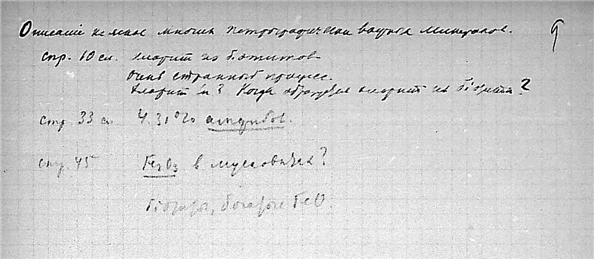 Описание не мане многих петрографически важных минералов.
9
стр. 10 сл. хлорит из биотитов
Очень странный процесс.
Хлорит ли? Когда образовался хлорит из биотита?
стр. 33 4.31%
стр. 45 Fe₂O₃ в мусковитах?
биотиты, богатые FeO.